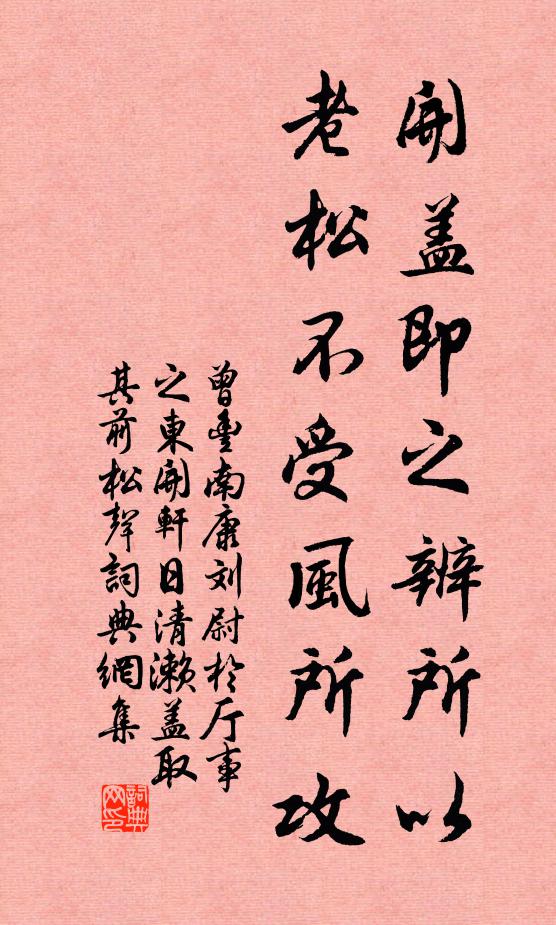 開盖即之辨所以
老松不受風所攻
曾豐南康刘尉於厅事
之東開軒日清濑盖取
其前松聲詞典網集
詞典网印